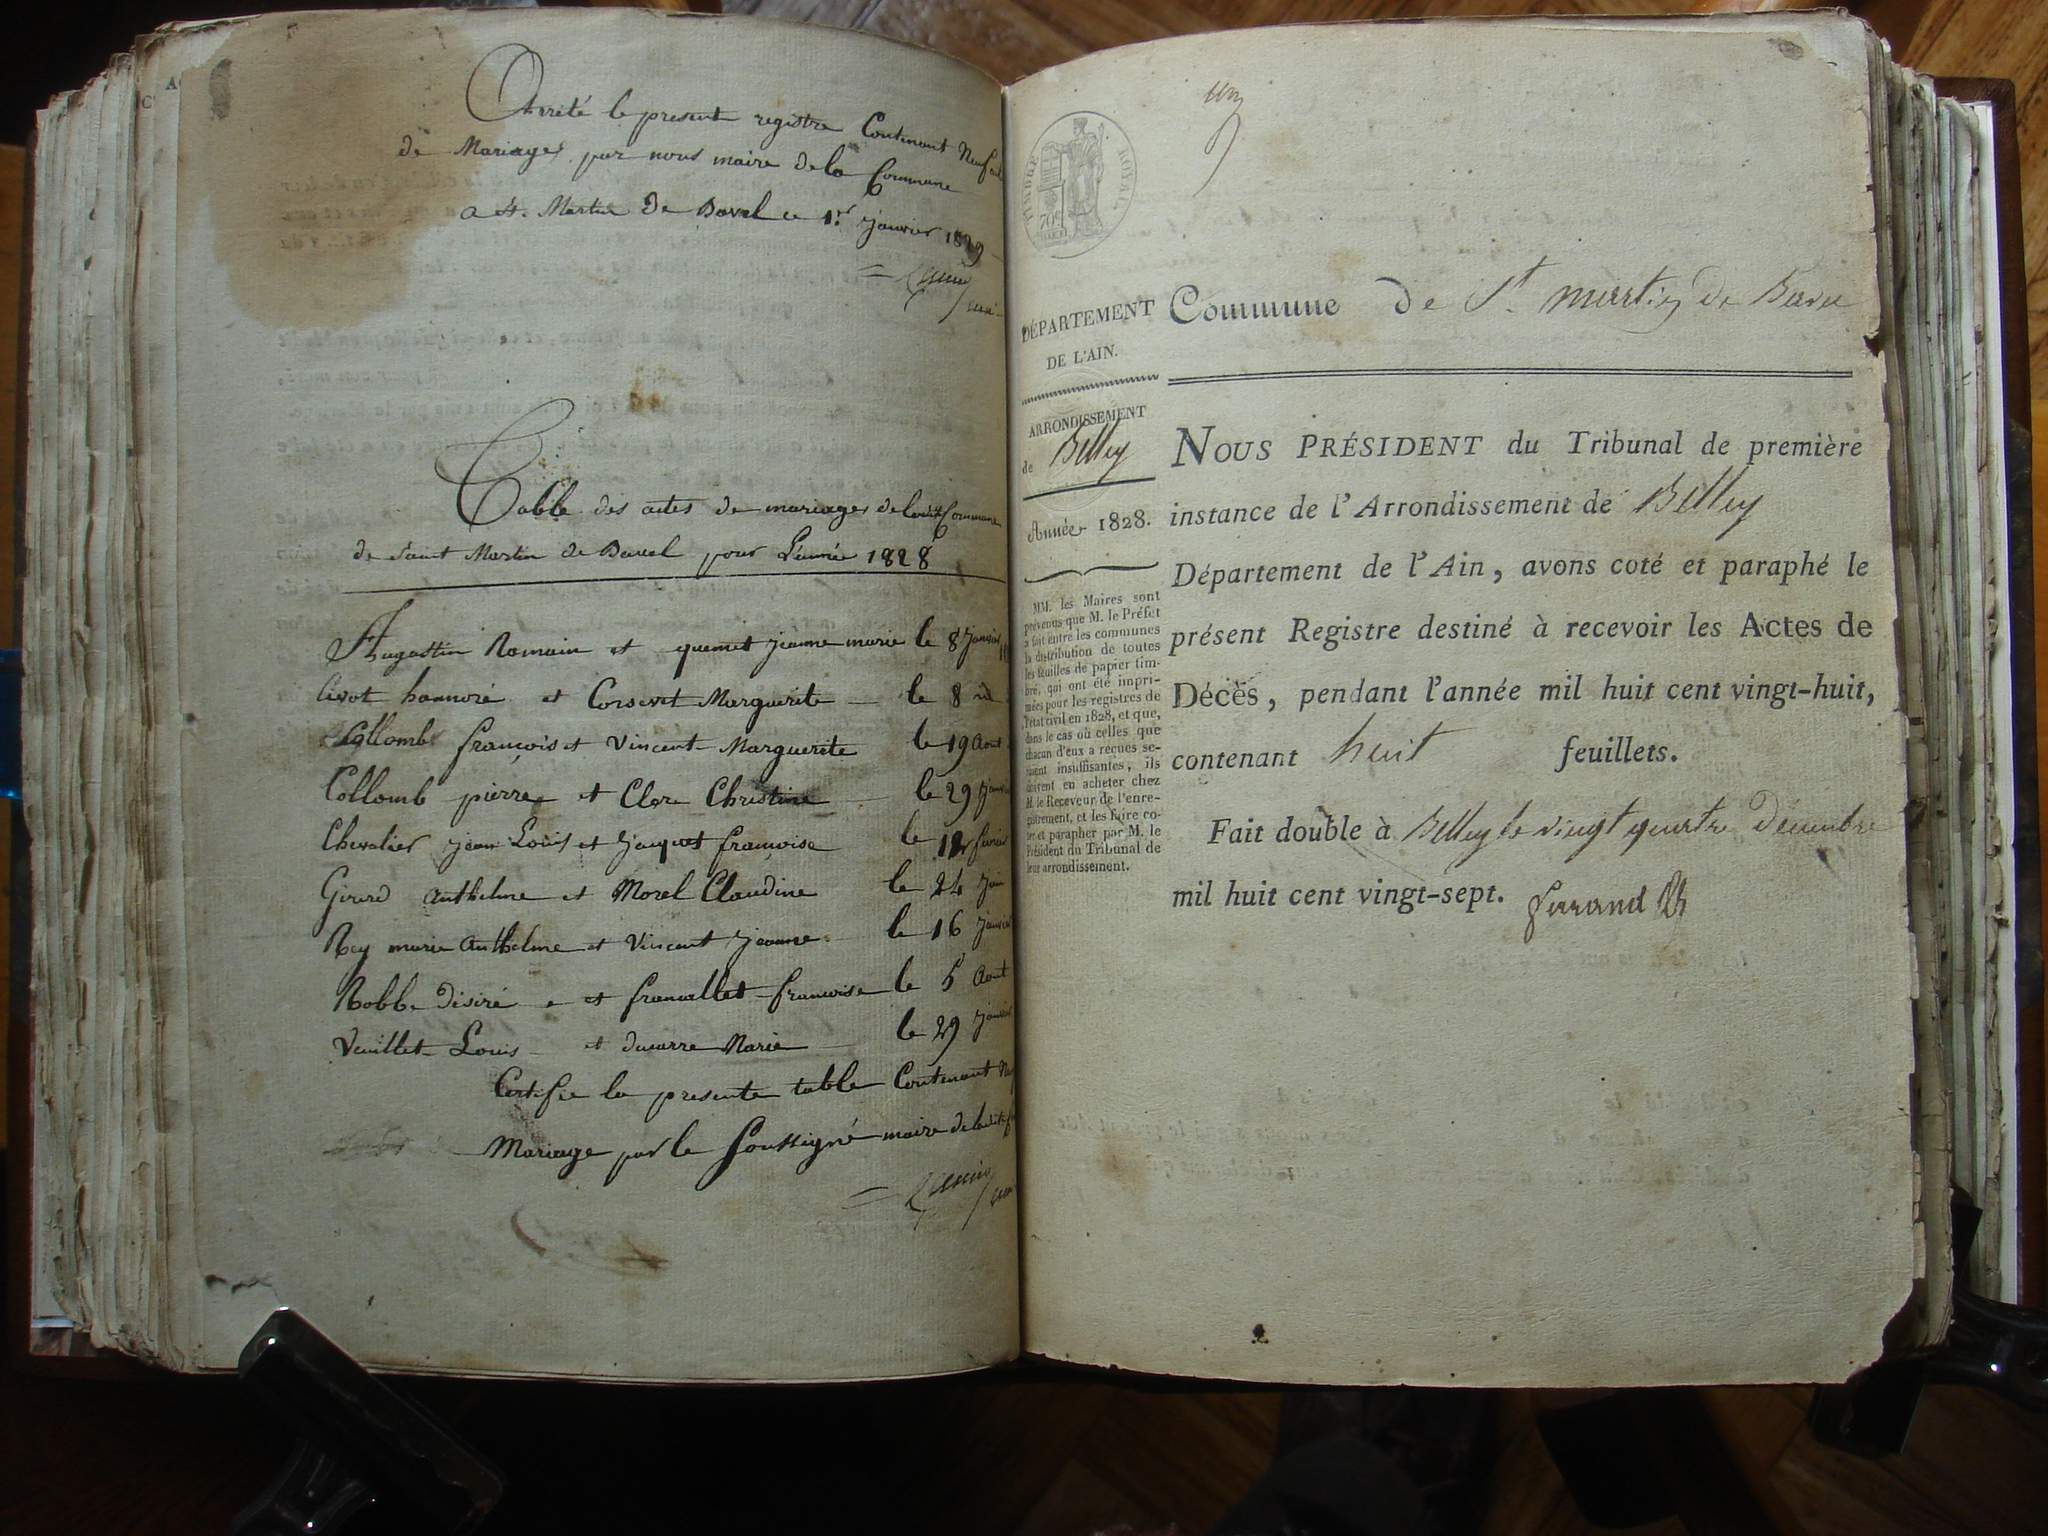 Arrêté le present registre Contenant Neuf
de Mariages par nous maire de la Commune
a St. Martin de Bavel ce 1er janvier 1829
Table des actes de mariages de ladite Commune
de Saint Martin de Bavel pour L'année 1828
Augustin Romain et jeanne marie le 8 Janvier
honnoré et Marguerite le 8 id
Collomb françois et Vincent Marguerite le 19 Aout
Collomb pierre et Clerc Christine le 29 janvier
Chevalier jean Louis et jacquet françoise le fevrier
Girerd anthelme et Morel Claudine le 24 juin
Rey marie anthelme et Vincent jeanne le 16 janvier
Robbe Désiré et françoise le 5 Aout
Veuillet Louis et ducarre Marie le 29 janvier
Certifié la presente table Contenant
Mariage par le Soussigné maire de ladite
TIMBRE ROYAL
70c
DÉPARTEMENT
DE L'AIN.
ARRONDISSEMENT
de Belley
Année 1828.
MM. les Maires sont
prévenus que M. le Préfet
a fait entre les communes
la distribution de toutes
les feuilles de papier tim-
bré, qui ont été impri-
mées pour les registres de
l'état civil en 1828, et que,
dans le cas où celles que
chacun d'eux a reçues se-
raient insuffisantes, ils
doivent en acheter chez
M. le Receveur de l'enre-
gistrement, et les faire co-
ter et parapher par M. le
Président du Tribunal de
leur arrondissement.
Commune de St. martin de Bavel
NOUS PRÉSIDENT du Tribunal de première
instance de l'Arrondissement de Belley
Département de l'Ain, avons coté et paraphé le
présent Registre destiné à recevoir les Actes de
Décès, pendant l'année mil huit cent vingt-huit,
contenant huit feuillets.
Fait double à Belley le vingt quatre décembre
mil huit cent vingt-sept.